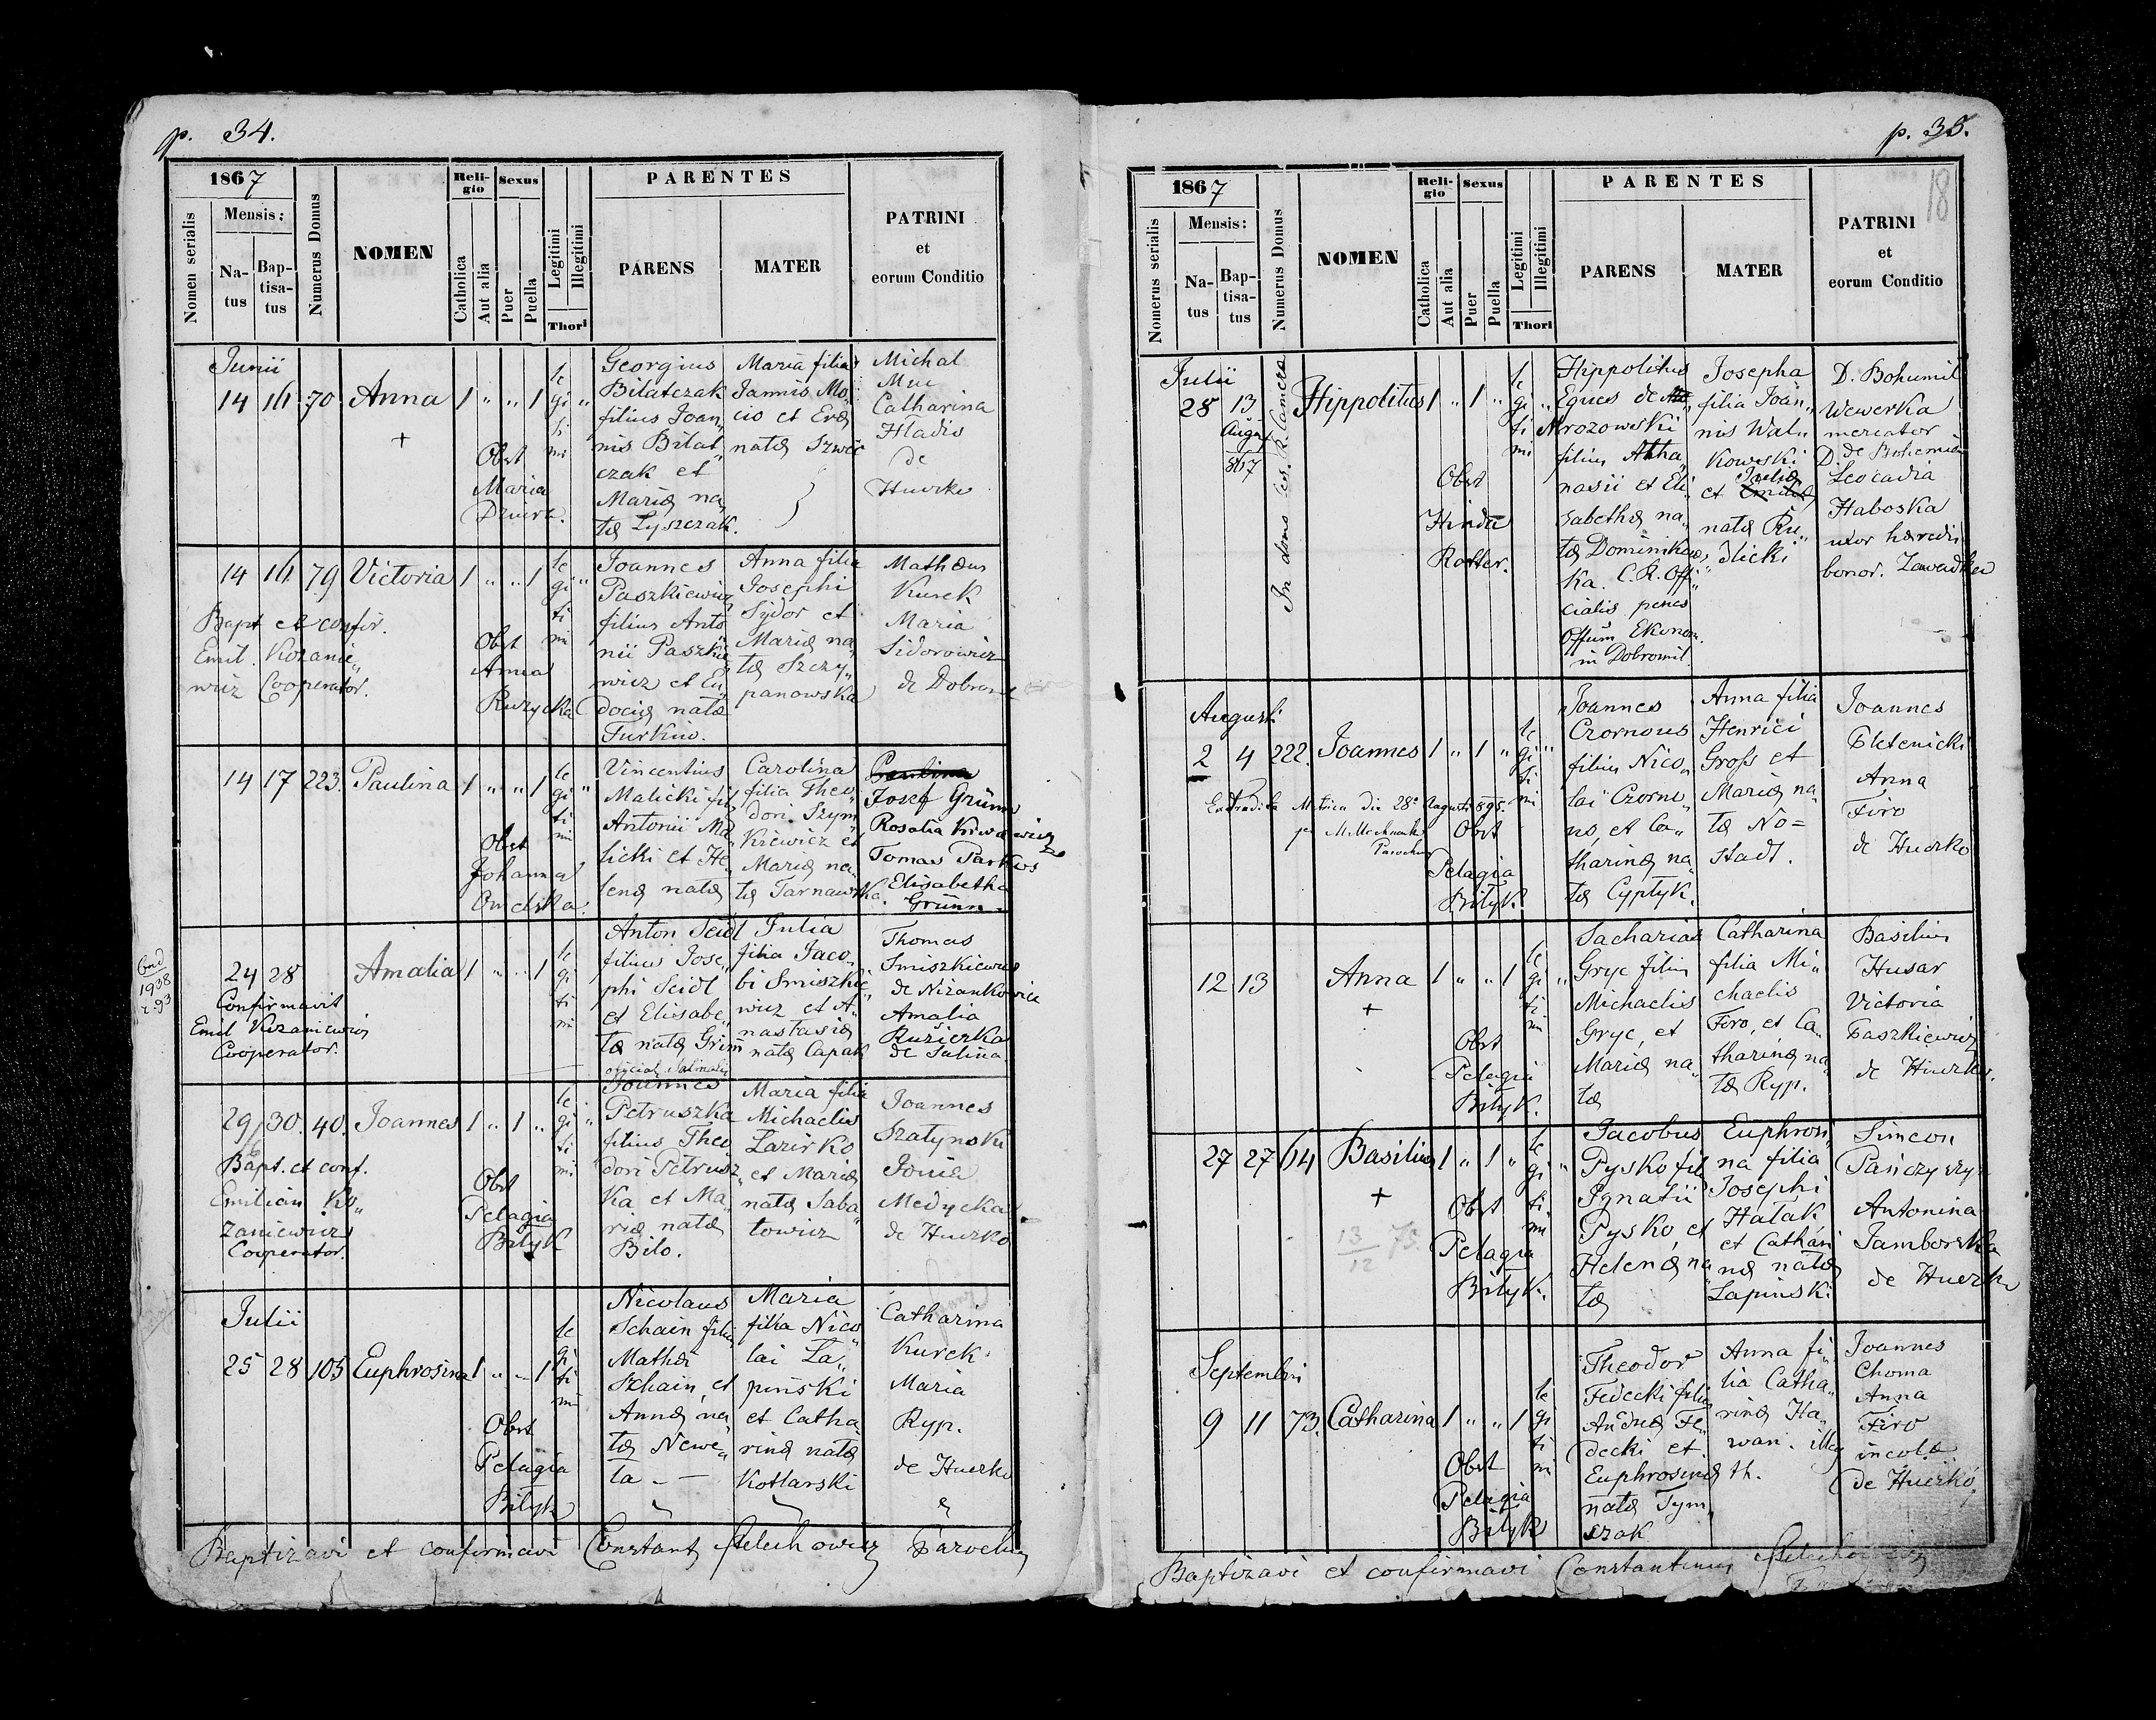 p. 34.
1867
Nomen serialis
Mensis:
Na-
tus
Bap-
tisa-
tus
Numerus Domus
NOMEN
Reli-
gio
Catholica
Aut alia
Sexus
Puer
Puella
Legitimi
Illegitimi
Thori
PARENTES
PARENS
MATER
PATRINI
et
eorum Conditio
Junii
14 16 70 Anna 1 " " 1
+
le
gi "
ti
mi
Obst
Maria
Georgius
Bilatczak
filius Joan„
nis Bilat„
czak et
Mariæ na„
tæ Łyszczak.
Maria filia
Joannis Mo„
cio et Evæ
natæ Szwec
Michal
Muc
Catharina
Hladio
de
Huczko
14 16 79 Victoria 1 " " 1
le
gi "
ti
mi
Bapt et confir.
Emil. Kozanie„
wicz Cooperator.
Obst
Anna
Ruzycka
Joannes
Paszkiewicz
filius Anto
nii Paszkie„
wicz et Eu„
dociæ natæ
Furkiw.
Anna filia
Josephi
Sydor et
Mariæ na„
tæ Szczy„
panowska
Mathæus
Kurek
Maria
Sidorowicz
de Dobromil
14 17 223. Paulina 1 " " 1
le
gi "
ti
mi
Obst
Johanna
Omelska.
Vincentius
Malicki fil
Antonii Ma
licki et He„
lenæ natæ
Carolina
filia Theo„
dori Szym„
kiewicz et
Mariæ na„
tæ Tarnawska.
Paulina
Josef Grünn
Rosalia Kniaziewicz
Tomas Parkos
Elisabetha
Grünn
bad
1938
r. 93
24 28 Amalia 1 " " 1
le
gi
ti
mi
Confirmavit
Emil Kozaniewicz
Cooperator.
Anton Seidl
filius Jose„
phi Seidl
et Elisabe„
tæ natæ Grim
Julia
filia Jaco„
bi Smiszkie„
wicz et A„
nastasiæ
natæ Capak
Thomas
Smiszkiewicz
de Nizankowice
Amalia
Ružiczka
de Salina
29/6 30. 40. Joannes 1 " 1 "
le
gi "
ti
mi
Bapt. et conf.
Emilian Ko„
zaniewicz
Cooperator.
Obst
Pelagia
Bilyk
Joannes
Petruszka
filius Theo„
dori Petrusz„
ka et Ma„
riæ natæ
Bilo.
Maria filia
Michaelis
Lazirko
et Mariæ
natæ Saba„
towicz
Joannes
Szatynski
Medycka
de Huczko
Julii
25 28 105 Euphrosina 1 " " 1
le
gi
ti
mi
Obst
Pelagia
Bilyk
Nicolaus
Schain filius
Mathæi
Szhain, et
Annæ na„
tæ Newe„
la - —
Maria
filia Nico„
lai La„
pinski
et Catha„
rinæ natæ
Kotlarski
Catharina
Kurek.
Maria
Ryp.
de Huczko
Baptizavi et confirmavi Constant Parochus
p. 35.
18
1867
Nomerus serialis
Mensis:
Na-
tus
Bap-
tisa-
tus
Numerus Domus
NOMEN
Reli-
gio
Catholica
Aut alia
Sexus
Puer
Puella
Legitimi
Illegitimi
Thori
PARENTES
PARENS
MATER
PATRINI
et
eorum Conditio
Julii
28 13
August
867
Hippolitus 1 " 1 "
le
gi "
ti
mi
Obst
Rotter.
Hippolitus
Eques de
Mrozowski
filius Atha„
nasii et Eli„
sabethæ na„
tæ Dominikows„
ka. C. R. Offi„
cialis penes
Offium Ekonom.
in Dobromil
Josepha
filia Joan„
nis Wal„
kowski
et Emiliæ
Juliæ
natæ Ru„
dlicki
D. Bohumil
Wewerka
mercator
D. de Bohemia
Leocadia
Haboska
uxor hæredis
bonor. Zawadka
Augusti
2 4 222. Joannes 1 " 1 "
le
gi "
ti
mi
Extradita Metrica die 28 Augusti 895.
Parochus
Obst
Pelagia
Bilyk.
Joannes
Czornous
filius Nico„
lai Czorno„
us, et Ca„
tharinæ na„
tæ Cyptyk.
Anna filia
Henrici
Gross et
Mariæ na„
tæ No=
stadt.
Joannes
Pletenicki
Anna
Firo
de Huczko
12 13 Anna 1 " " 1
+
le
gi "
ti
mi
Obst
Pelagia
Bilyk.
Sacharias
Gryc filius
Michaelis
Gryc, et
Mariæ na„
tæ
Catharina
filia Mi„
chaelis
Firo, et Ca„
tharinæ na„
tæ Ryp.
Basilius
Husar
Victoria
Paszkiewicz
de Huczko.
27 27 64 Basilius 1 " 1 "
+
13/12 73.
le
gi "
ti
mi
Obst
Pelagia
Bilyk.
Jacobus
Pysko fil
Ignatii
Pysko, et
Helenæ na
tæ
Euphrosi„
na filia
Josephi
Halak
et Cathari
næ natæ
Lapinski
Simeon
Panczyszyn
Antonina
Jamborska
de Huczko
Septembris
9 11 73. Catharina 1 " " 1
le
gi
ti
mi
Obst
Pelagia
Bilyk
Theodor
Fedecki filius
Andreæ Fe„
decki et
Euphrosinæ
natæ Tym„
czak
Anna fi„
lia Catha„
rinæ Ha„
wan. illeg
th.
Joannes
Choma
Anna
Firo
incolæ
de Huczko,
Baptizavi et confirmavi Constantinus